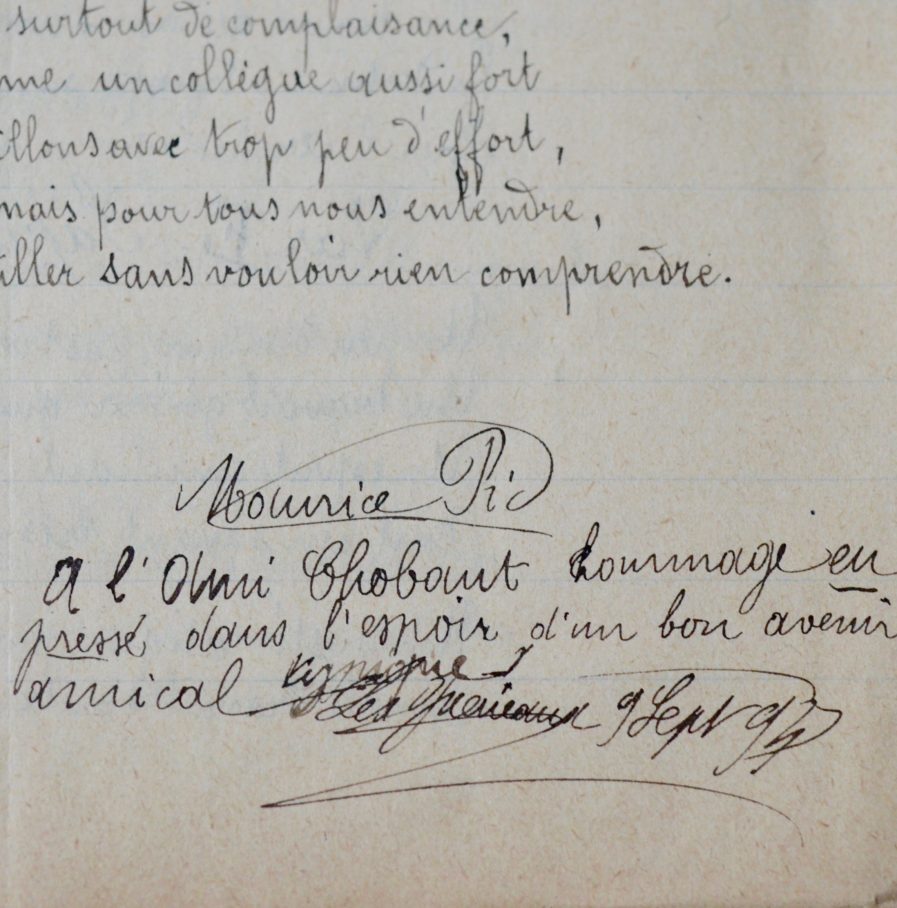 surtout de complaisance,
me un collègue aussi fort
illons avec trop peu d'effort,
mais pour tous nous entendre,
iller sans vouloir rien comprendre.
Maurice Pic
A l'Ami Chobaut hommage em
pressé dans l'espoir d'un bon avenir
amical
9 Sept 97